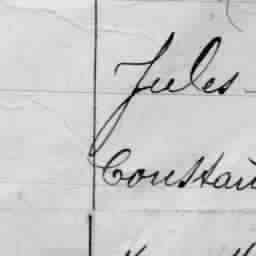 Jules
Constan